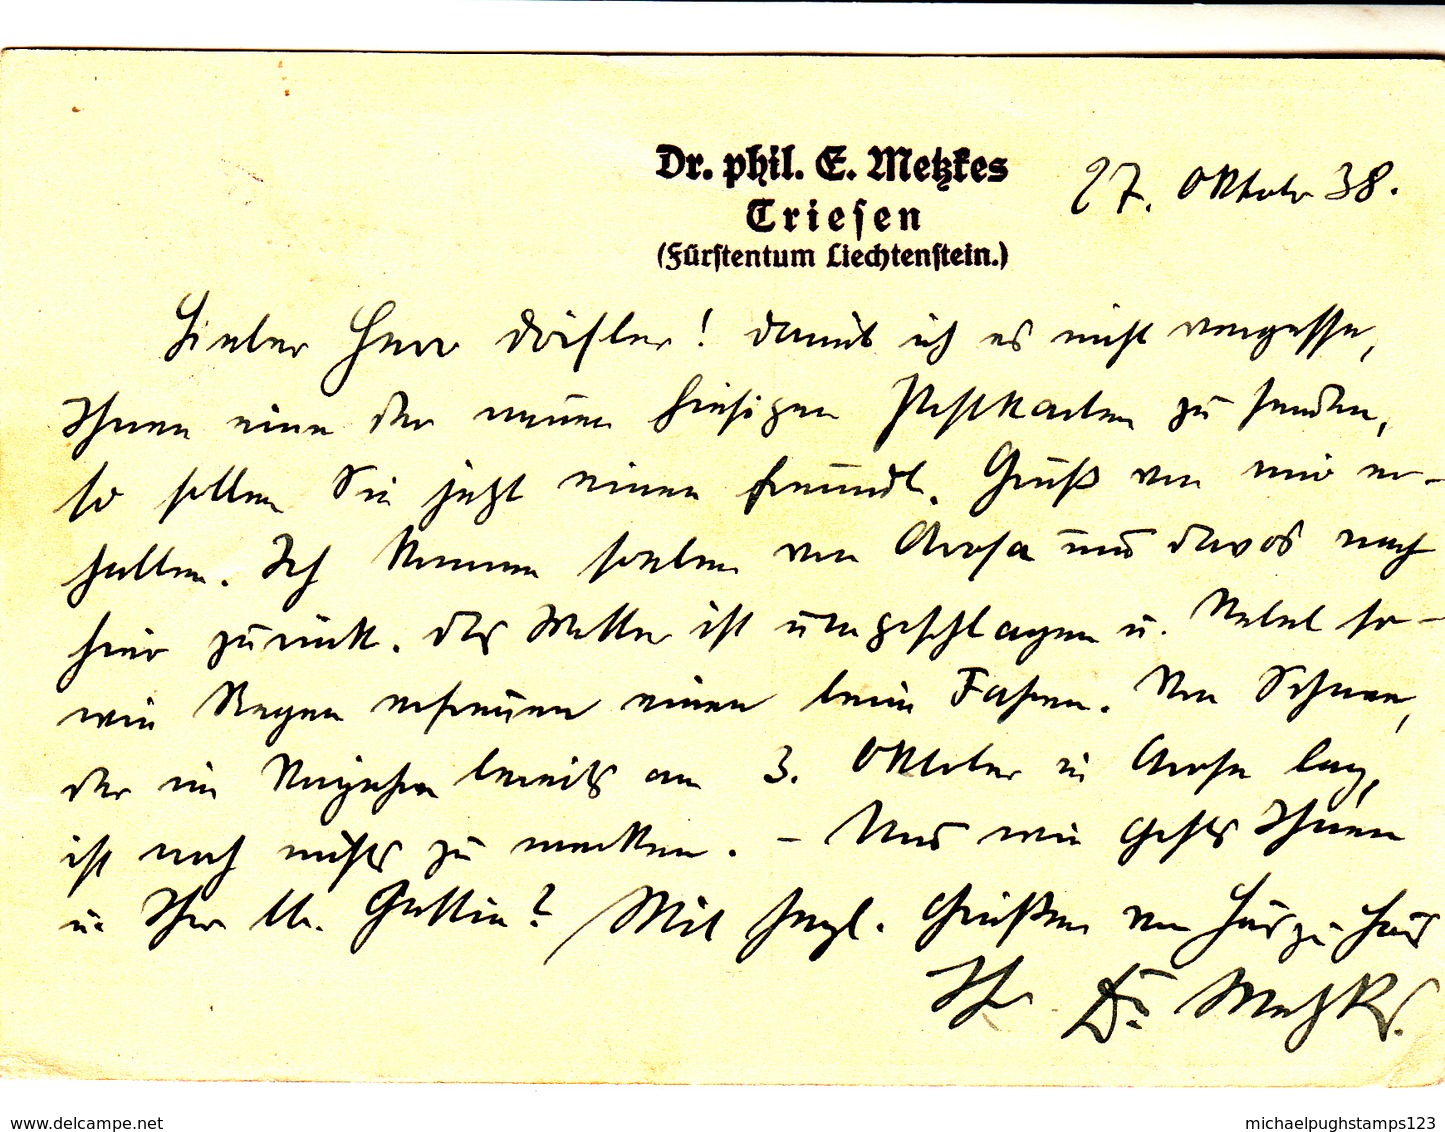 Dr. phil. E. Metzkes
Triesen
(Fürstentum Liechtenstein.)
27. Oktober 38.
Lieber Herr ! Damit ich es nicht vergesse,
Ihnen eine der neuen hiesigen Postkarten zu senden,
so sollen Sie jetzt einen freundl. Gruß von mir er-
halten. Ich komme soeben von Arosa und Davos nach
hier zurück. Das Wetter ist umgeschlagen u. Nebel so-
wie Regen erfreuen einen beim Fahren. Von Schnee,
der im bereits am 3. Oktober in Arosa lag,
ist noch nichts zu merken. – Und wie gehts Ihnen
u. Ihrer lb. Gattin? Mit herzl. Grüßen von Haus zu Haus
Ihr Dr. Metzkes.
www.delcampe.net
michaelpughstamps123